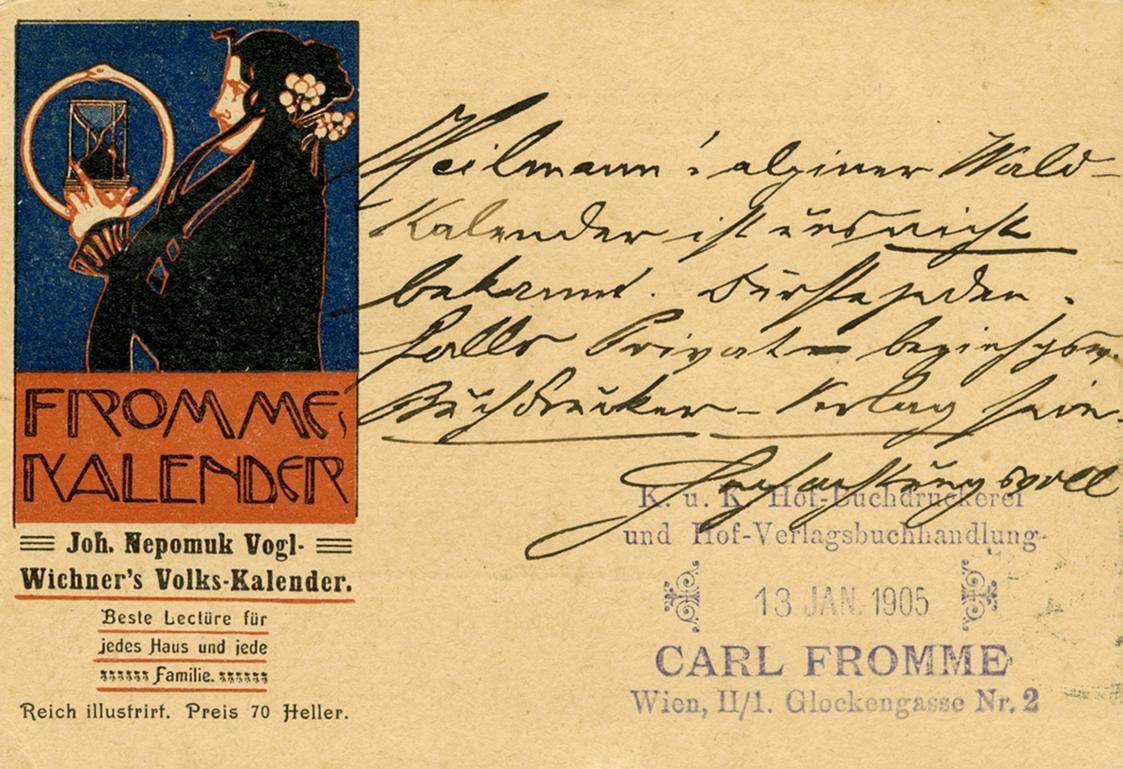 FROMME'S
KALENDER
Joh. Nepomuk Vogl-
Wichner's Volks-Kalender.
Beste Lectüre für
jedes Haus und jede
Familie.
Reich illustrirt. Preis 70 Heller.
Heilmann's alpiner Wald-
Kalender ist uns nicht
bekannt. Dürfte jeden-
falls Privat- beziehgsw.
Buchdrucker-Verlag sein.
Hochachtungsvoll
K. u. K. Hof-Buchdruckerei
und Hof-Verlagsbuchhandlung
13 JAN. 1905
CARL FROMME
Wien, II/1. Glockengasse Nr. 2